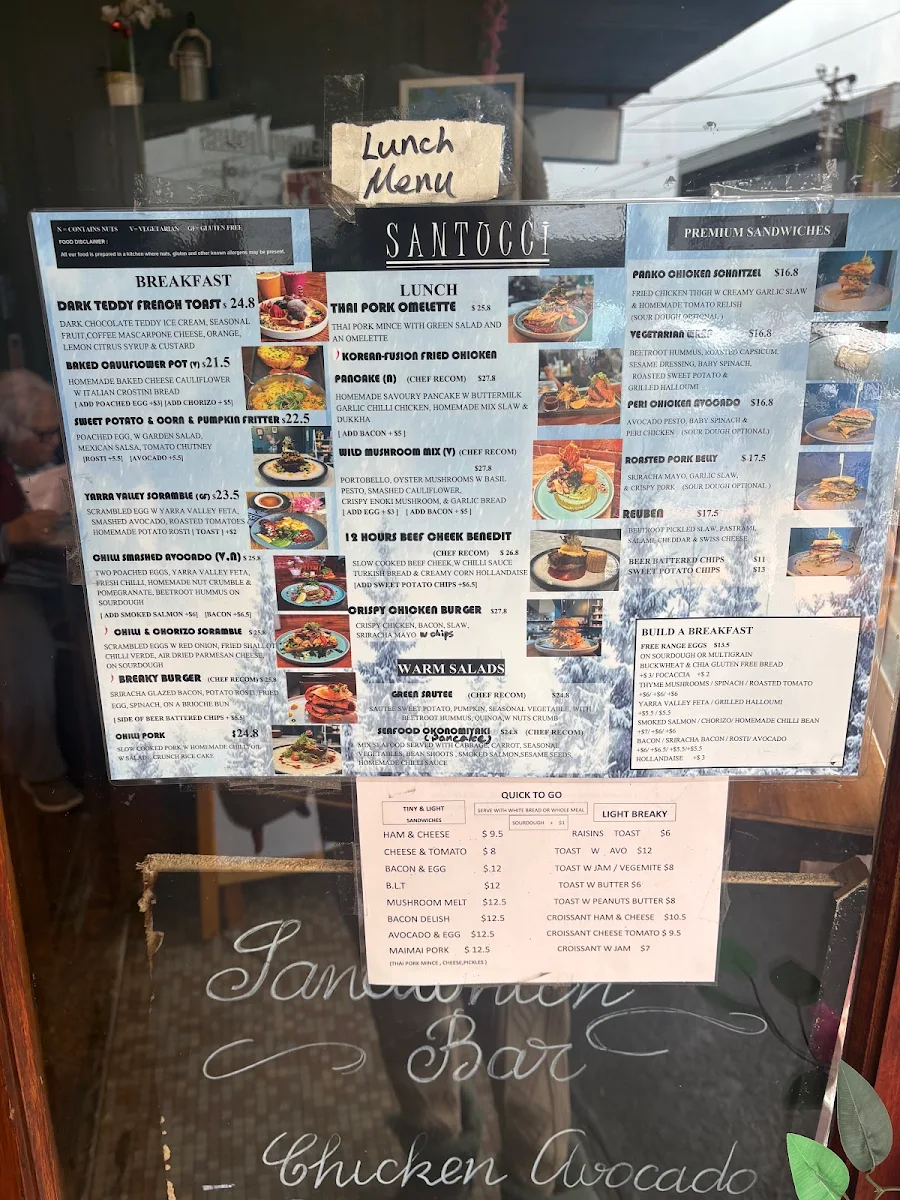 Lunch
Menu
N = CONTAINS NUTS V= VEGETARIAN GF= GLUTEN FREE
FOOD DISCLAIMER :
All our food is prepared in a kitchen where nuts, gluten and other known allergens may be present.
SANTUCCI
BREAKFAST
DARK TEDDY FRENCH TOAST $ 24.8
DARK CHOCOLATE TEDDY ICE CREAM, SEASONAL
FRUIT,COFFEE MASCARPONE CHEESE, ORANGE,
LEMON CITRUS SYRUP & CUSTARD
BAKED CAULIFLOWER POT (V) $21.5
HOMEMADE BAKED CHEESE CAULIFLOWER
W ITALIAN CROSTINI BREAD
[ ADD POACHED EGG +$3] [ADD CHORIZO + $5]
SWEET POTATO & CORN & PUMPKIN FRITTER $22.5
POACHED EGG, W GARDEN SALAD,
MEXICAN SALSA, TOMATO CHUTNEY
[ROSTI +5.5] [AVOCADO +5.5]
YARRA VALLEY SCRAMBLE (GF) $23.5
SCRAMBLED EGG W YARRA VALLEY FETA,
SMASHED AVOCADO, ROASTED TOMATOES
HOMEMADE POTATO ROSTI [ TOAST ] +$2
CHILLI SMASHED AVOCADO (V,N) $ 25.8
TWO POACHED EGGS, YARRA VALLEY FETA,
FRESH CHILLI, HOMEMADE NUT CRUMBLE &
POMEGRANATE, BEETROOT HUMMUS ON
SOURDOUGH
[ ADD SMOKED SALMON +$6] [BACON +$6.5]
CHILLI & CHORIZO SCRAMBLE $ 25.8
SCRAMBLED EGGS W RED ONION, FRIED SHALLOT
CHILLI VERDE, AIR DRIED PARMESAN CHEESE,
ON SOURDOUGH
BREAKY BURGER (CHEF RECOM) $ 25.8
SRIRACHA GLAZED BACON, POTATO ROSTI, FRIED
EGG, SPINACH, ON A BRIOCHE BUN
[ SIDE OF BEER BATTERED CHIPS + $6.5]
CHILLI PORK $24.8
SLOW COOKED PORK W HOMEMADE CHILLI OIL
W SALAD CRUNCH RICE CAKE
LUNCH
THAI PORK OMELETTE $ 25.8
THAI PORK MINCE WITH GREEN SALAD AND
AN OMELETTE
KOREAN-FUSION FRIED CHICKEN
PANCAKE (N) (CHEF RECOM) $27.8
HOMEMADE SAVOURY PANCAKE W BUTTERMILK
GARLIC CHILLI CHICKEN, HOMEMADE MIX SLAW &
DUKKHA
[ ADD BACON + $5 ]
WILD MUSHROOM MIX (V) (CHEF RECOM)
$27.8
PORTOBELLO, OYSTER MUSHROOMS W BASIL
PESTO, SMASHED CAULIFLOWER,
CRISPY ENOKI MUSHROOM, & GARLIC BREAD
[ ADD EGG + $3 ] [ ADD BACON + $5 ]
12 HOURS BEEF CHEEK BENEDIT
(CHEF RECOM) $ 26.8
SLOW COOKED BEEF CHEEK,W CHILLI SAUCE
TURKISH BREAD & CREAMY CORN HOLLANDAISE
[ADD SWEET POTATO CHIPS +$6.5]
CRISPY CHICKEN BURGER $27.8
CRISPY CHICKEN, BACON, SLAW,
SRIRACHA MAYO w chips
WARM SALADS
GREEN SAUTEE (CHEF RECOM) $24.8
SAUTEE SWEET POTATO, PUMPKIN, SEASONAL VEGETABLE, WITH
BEETROOT HUMMUS, QUINOA,W NUTS CRUMB
SEAFOOD OKONOMIYAKI $24.8 (CHEF RECOM)
(pancake)
MIX SEAFOOD SERVED WITH CABBAGE, CARROT, SEASONAL
VEGETABLES, BEAN SHOOTS , SMOKED SALMON,SESAME SEEDS,
HOMEMADE CHILLI SAUCE
PREMIUM SANDWICHES
PANKO CHICKEN SCHNITZEL $16.8
FRIED CHICKEN THIGH W CREAMY GARLIC SLAW
& HOMEMADE TOMATO RELISH
(SOUR DOUGH OPTIONAL )
VEGETARIAN WRAP $16.8
BEETROOT HUMMUS, ROASTED CAPSICUM,
SESAME DRESSING, BABY SPINACH,
ROASTED SWEET POTATO &
GRILLED HALLOUMI
PERI CHICKEN AVOCADO $16.8
AVOCADO PESTO, BABY SPINACH &
PERI CHICKEN (SOUR DOUGH OPTIONAL)
ROASTED PORK BELLY $ 17.5
SRIRACHA MAYO, GARLIC SLAW,
& CRISPY PORK (SOUR DOUGH OPTIONAL )
REUBEN $17.5
BEETROOT PICKLED SLAW, PASTRAMI,
SALAMI, CHEDDAR & SWISS CHEESE
BEER BATTERED CHIPS $11
SWEET POTATO CHIPS $13
BUILD A BREAKFAST
FREE RANGE EGGS $13.5
ON SOURDOUGH OR MULTIGRAIN
BUCKWHEAT & CHIA GLUTEN FREE BREAD
+$ 3/ FOCACCIA +$ 2
THYME MUSHROOMS / SPINACH / ROASTED TOMATO
+$6/ +$6/ +$6
YARRA VALLEY FETA / GRILLED HALLOUMI
+$5.5 / $5.5
SMOKED SALMON / CHORIZO/ HOMEMADE CHILLI BEAN
+$7/ +$6/ +$6
BACON / SRIRACHA BACON / ROSTI/ AVOCADO
+$6/ +$6.5/ +$5.5/+$5.5
HOLLANDAISE +$ 3
QUICK TO GO
TINY & LIGHT
SANDWICHES
SERVE WITH WHITE BREAD OR WHOLE MEAL
SOURDOUGH + $1
HAM & CHEESE $ 9.5
CHEESE & TOMATO $ 8
BACON & EGG $.12
B.L.T $12
MUSHROOM MELT $12.5
BACON DELISH $12.5
AVOCADO & EGG $12.5
MAIMAI PORK $ 12.5
(THAI PORK MINCE , CHEESE,PICKLES )
LIGHT BREAKY
RAISINS TOAST $6
TOAST W AVO $12
TOAST W JAM / VEGEMITE $8
TOAST W BUTTER $6
TOAST W PEANUTS BUTTER $8
CROISSANT HAM & CHEESE $10.5
CROISSANT CHEESE TOMATO $ 9.5
CROISSANT W JAM $7
Sandwich
Bar
Chicken Avocado